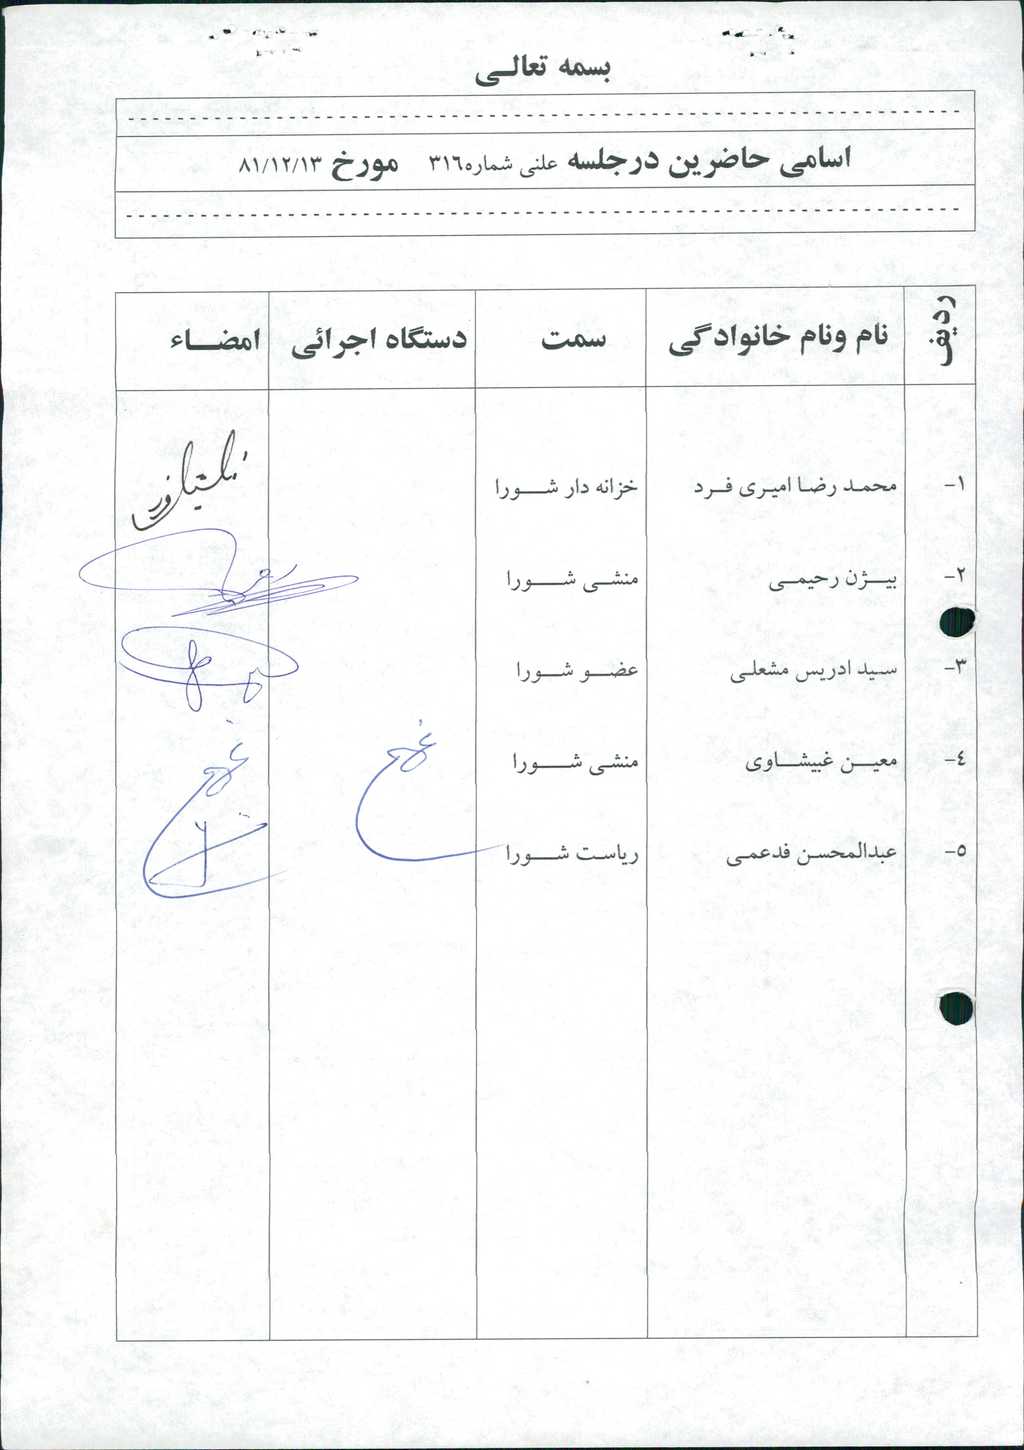 بسمه تعالی
اسامی حاضرین درجلسه علنی شماره ۳۱٦ مورخ ۸۱/۱۲/۱۳
ردیف نام ونام خانوادگی سمت دستگاه اجرائی امضاء
۱- محمد رضا امیری فرد خزانه دار شورا
۲- بیژن رحیمی منشی شورا
۳- سید ادریس مشعلی عضو شورا
٤- معین غبیشاوی منشی شورا
۵- عبدالمحسن فدعمی ریاست شورا